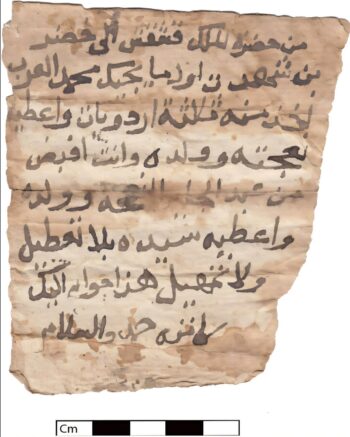 من حضرة الملك قشقش الى خضر
بن شهدت اول ما يجيك محمد العرب
تاخذ منه ثلاثة اردويات واعطيه
نعجته وولده وانت اقبض
من عبد النعجه وولده
واعطيه سيده بلا تعطيل
ولا تمهيل هذا جوابه اليك
والسلام
Cm